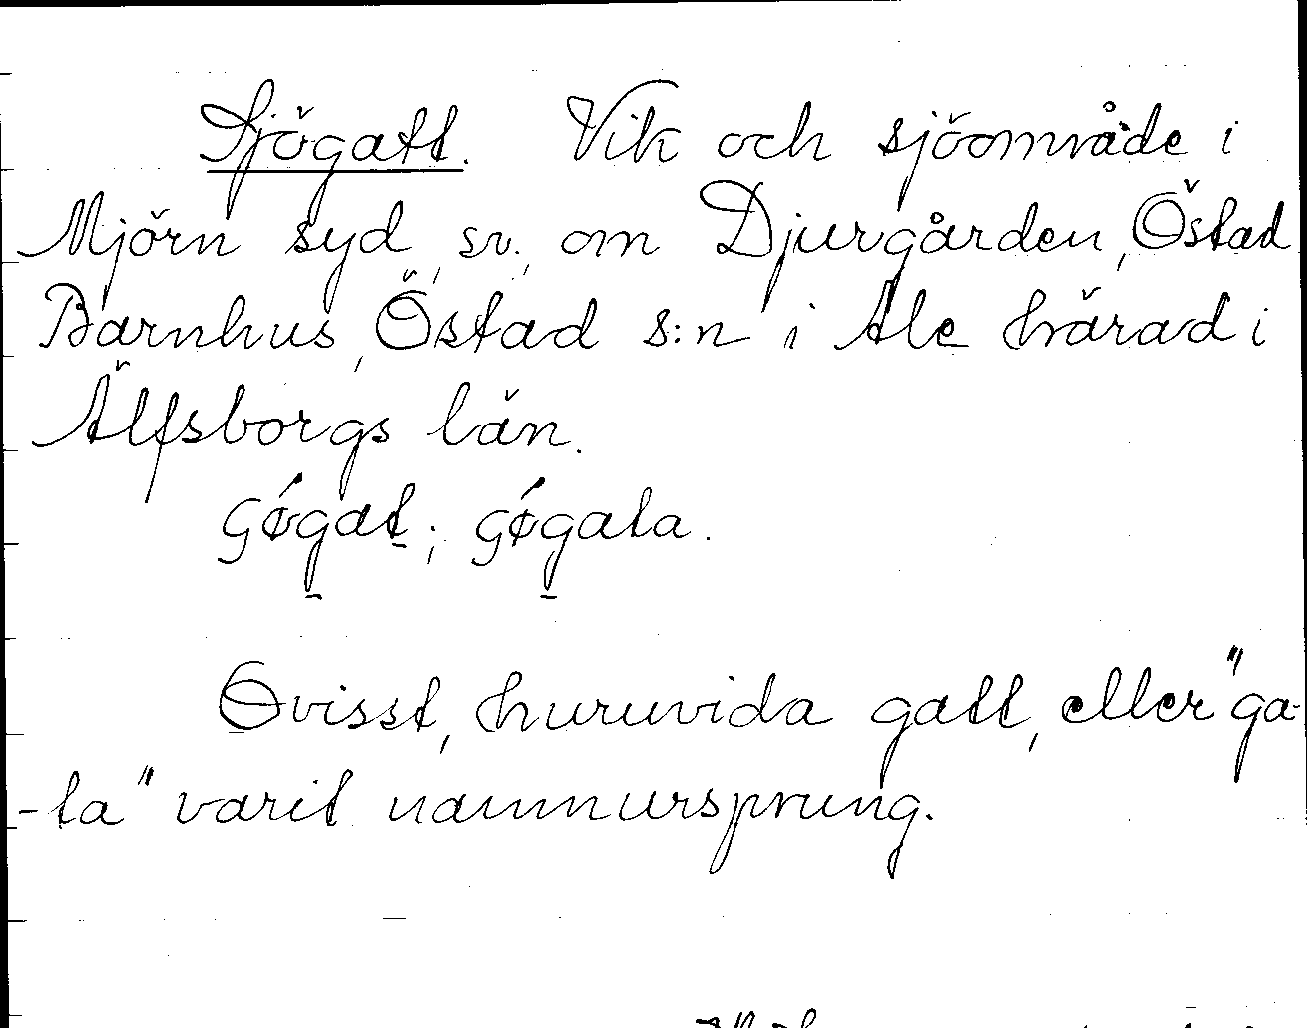 Sjögatt. Vik och sjöområde i
Mjörn syd, sv., om Djurgården, Östad
Barnhus, Östad s:n i Ale härad i
Älfsborgs län.
Gǿgat; Gǿgata.
Ovisst, huruvida gatt, eller "ga-
-ta" varit namnursprung.